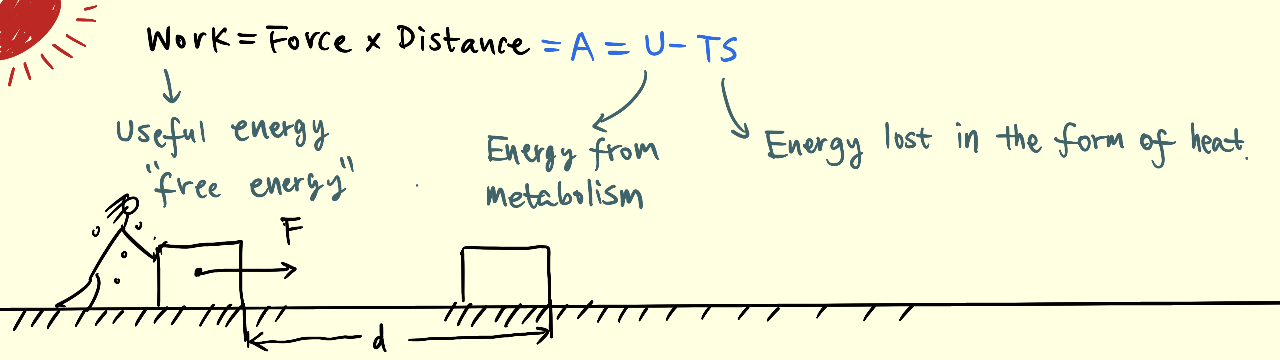 Work = Force x Distance = A = U - TS
Useful energy
"free energy"
Energy from
metabolism
Energy lost in the form of heat.
F
d